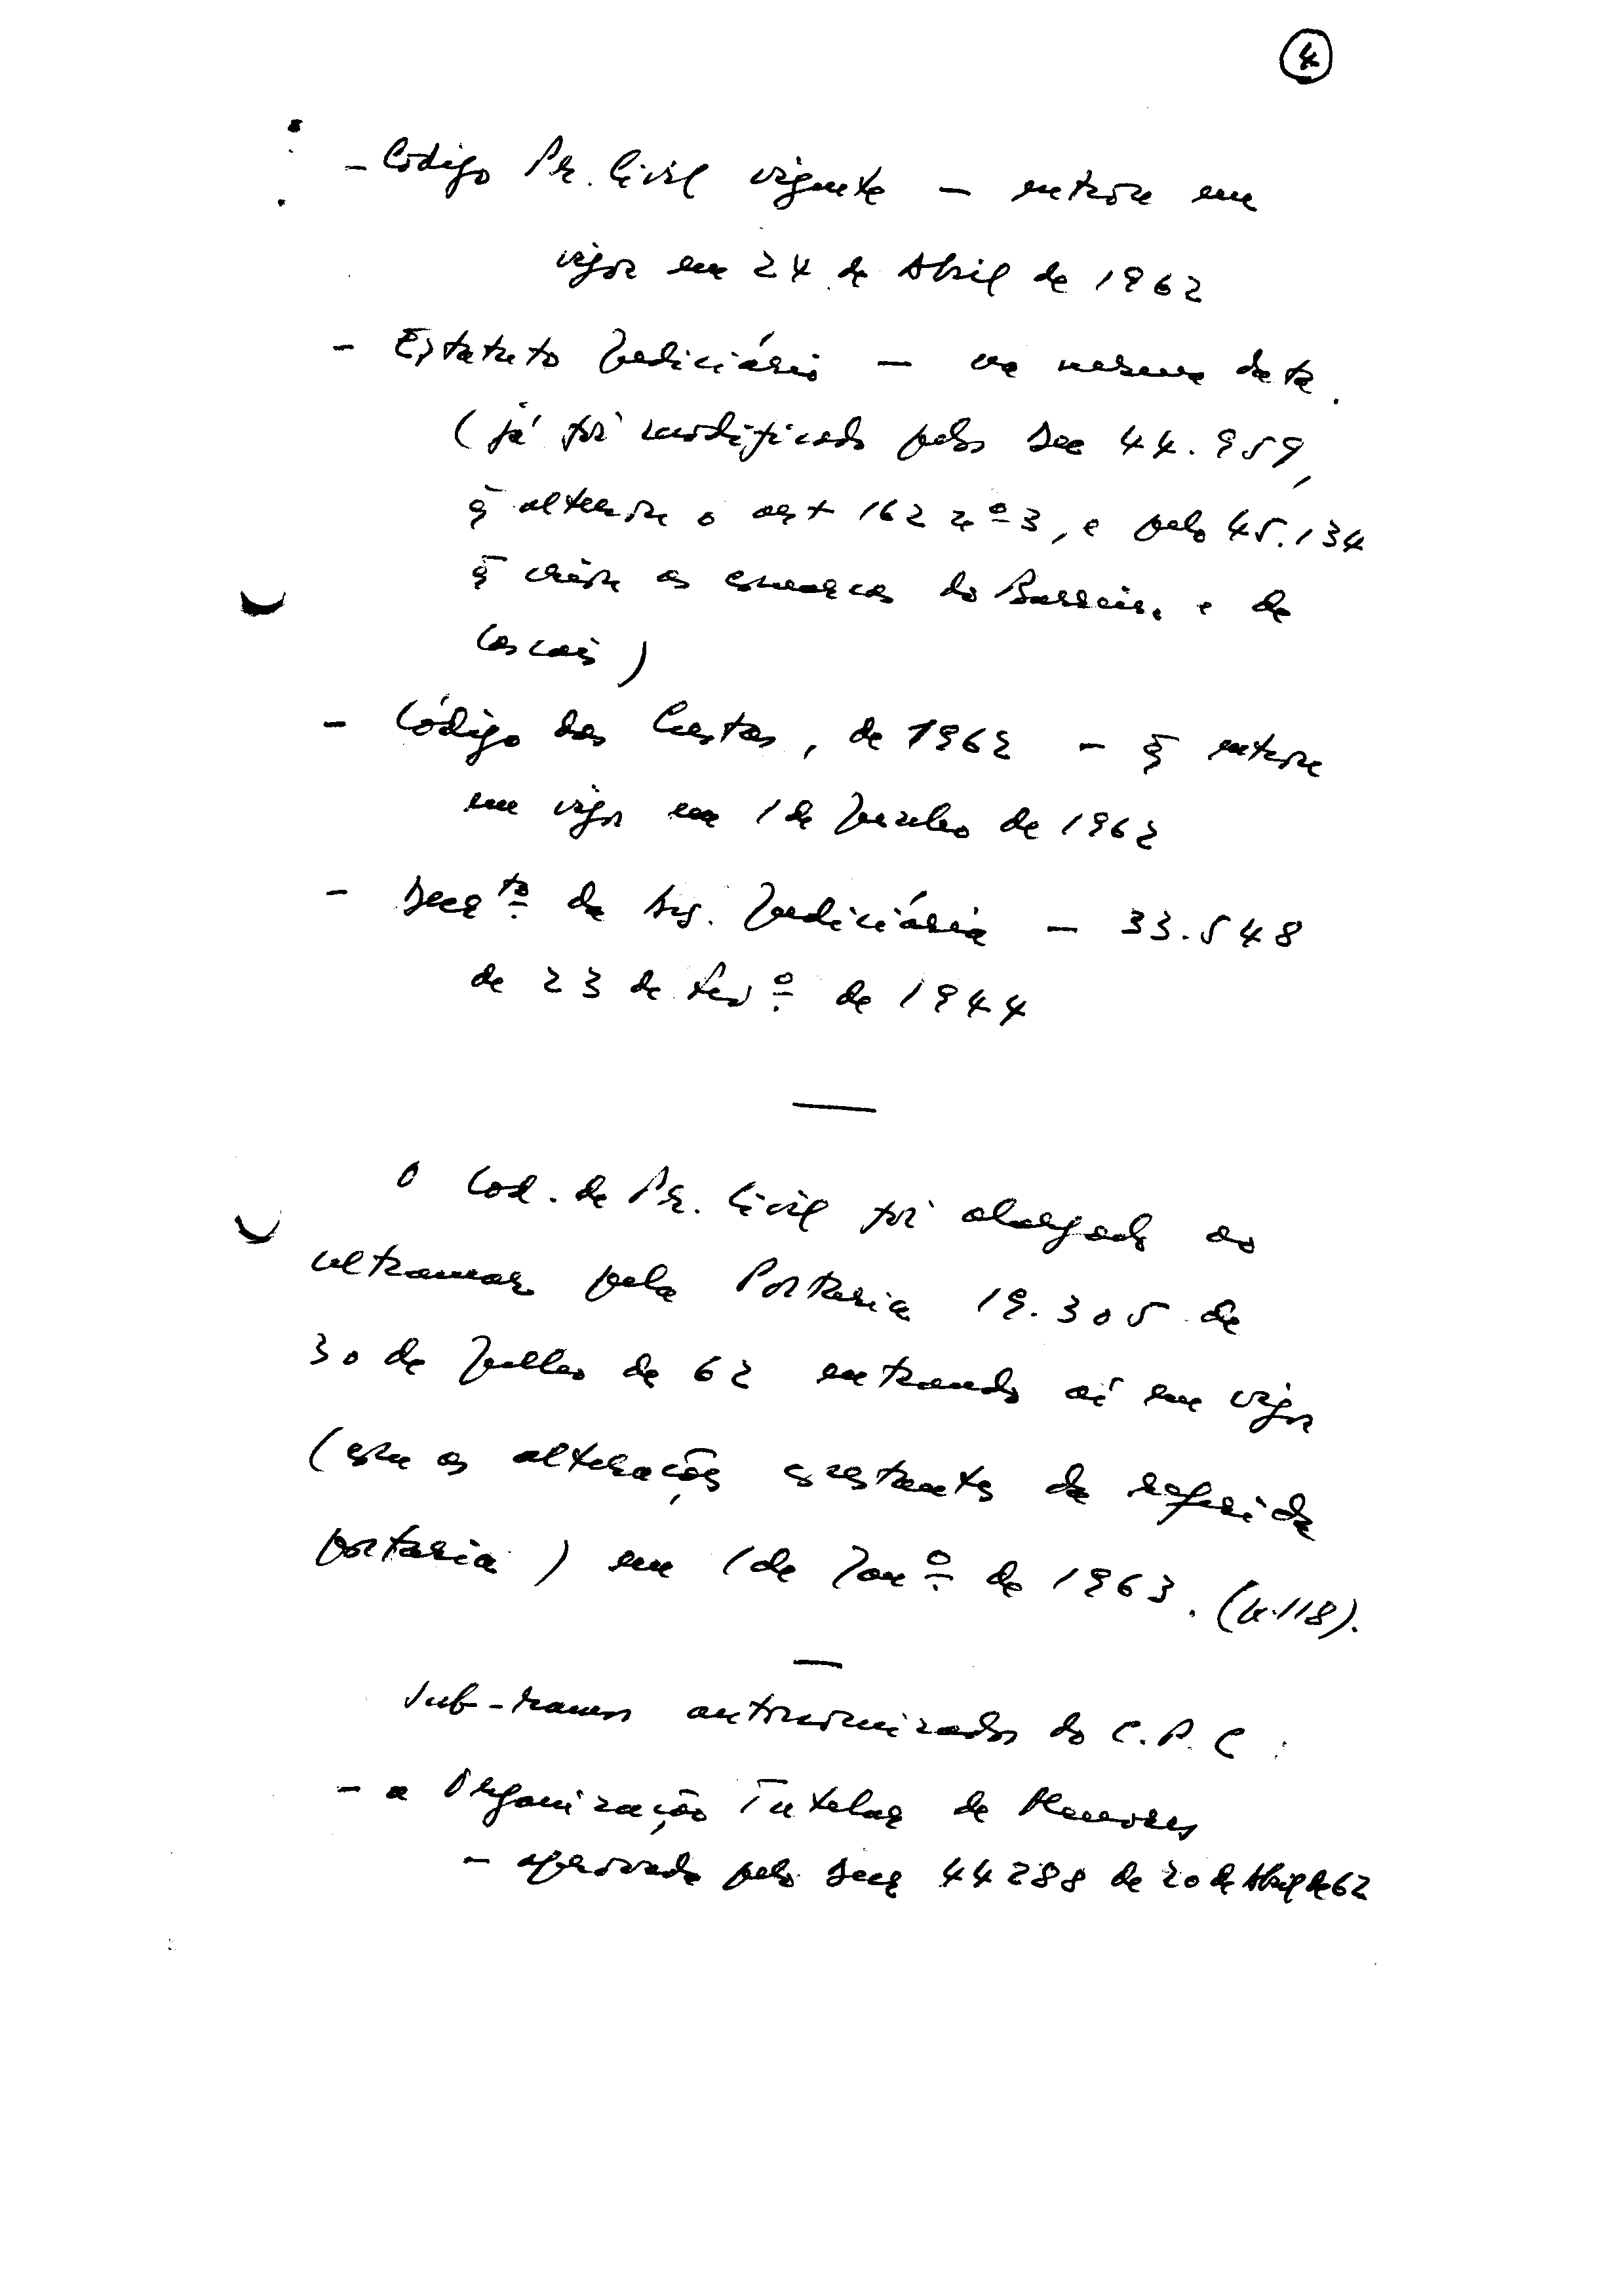 4
- Código Pr. Civil vigente - entrou em
vigor em 24 de Abril de 1962
- Estatuto Judiciário - na mesma data.
(já foi modificado pelos Dec 44.959,
q̄ alterou o art 162 nº 3, e pelo 45.134
q̄ criou as comarcas do Barreiro e de
Cascais)
- Código das Custas, de 1962 - q̄ entrou
em vigor em 1 de Junho de 1962
- Decrto de Org. Judiciária - 33.548
de 23 de Fevº de 1944
O Cod. de Pr. Civil foi alargado ao
ultramar pela Portaria 19.305 de
30 de Julho de 62 entrando aí em vigor
(com as alterações constantes da referida
portaria) em 1 de Janº de 1963. (44.118).
Sub-ramos autonomizados do C. P. C:
- a Organização Tutelar de Menores
- aprovada pelo Decr 44288 de 20 de Abril de 62